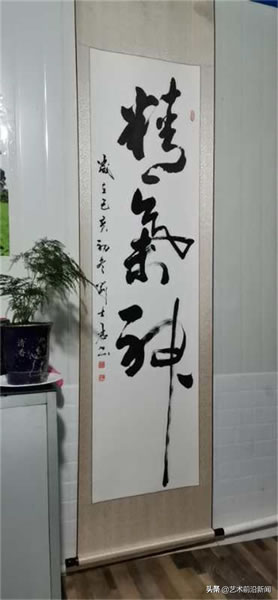 精氣神
歲在己亥初冬
头条 @艺术前沿新闻